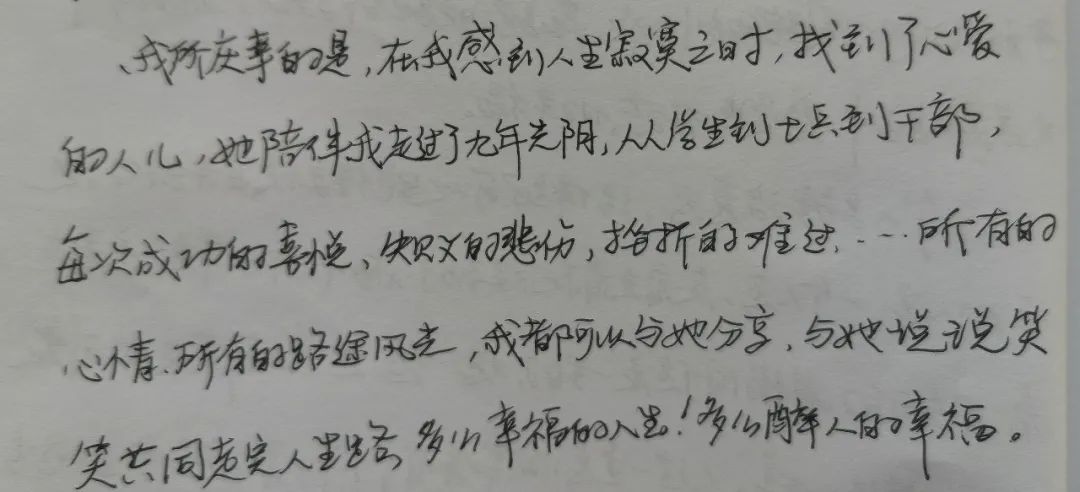 我所庆幸的是，在我感到人生寂寞之时，找到了心爱
的人儿，她陪伴我走过了九年光阴，从学生到士兵到干部，
每次成功的喜悦、失败的悲伤，挫折的难过……所有的
心情、所有的路途风光，我都可以与她分享，与她说说笑
笑共同走完人生路，多么幸福的人生！多么醉人的幸福。